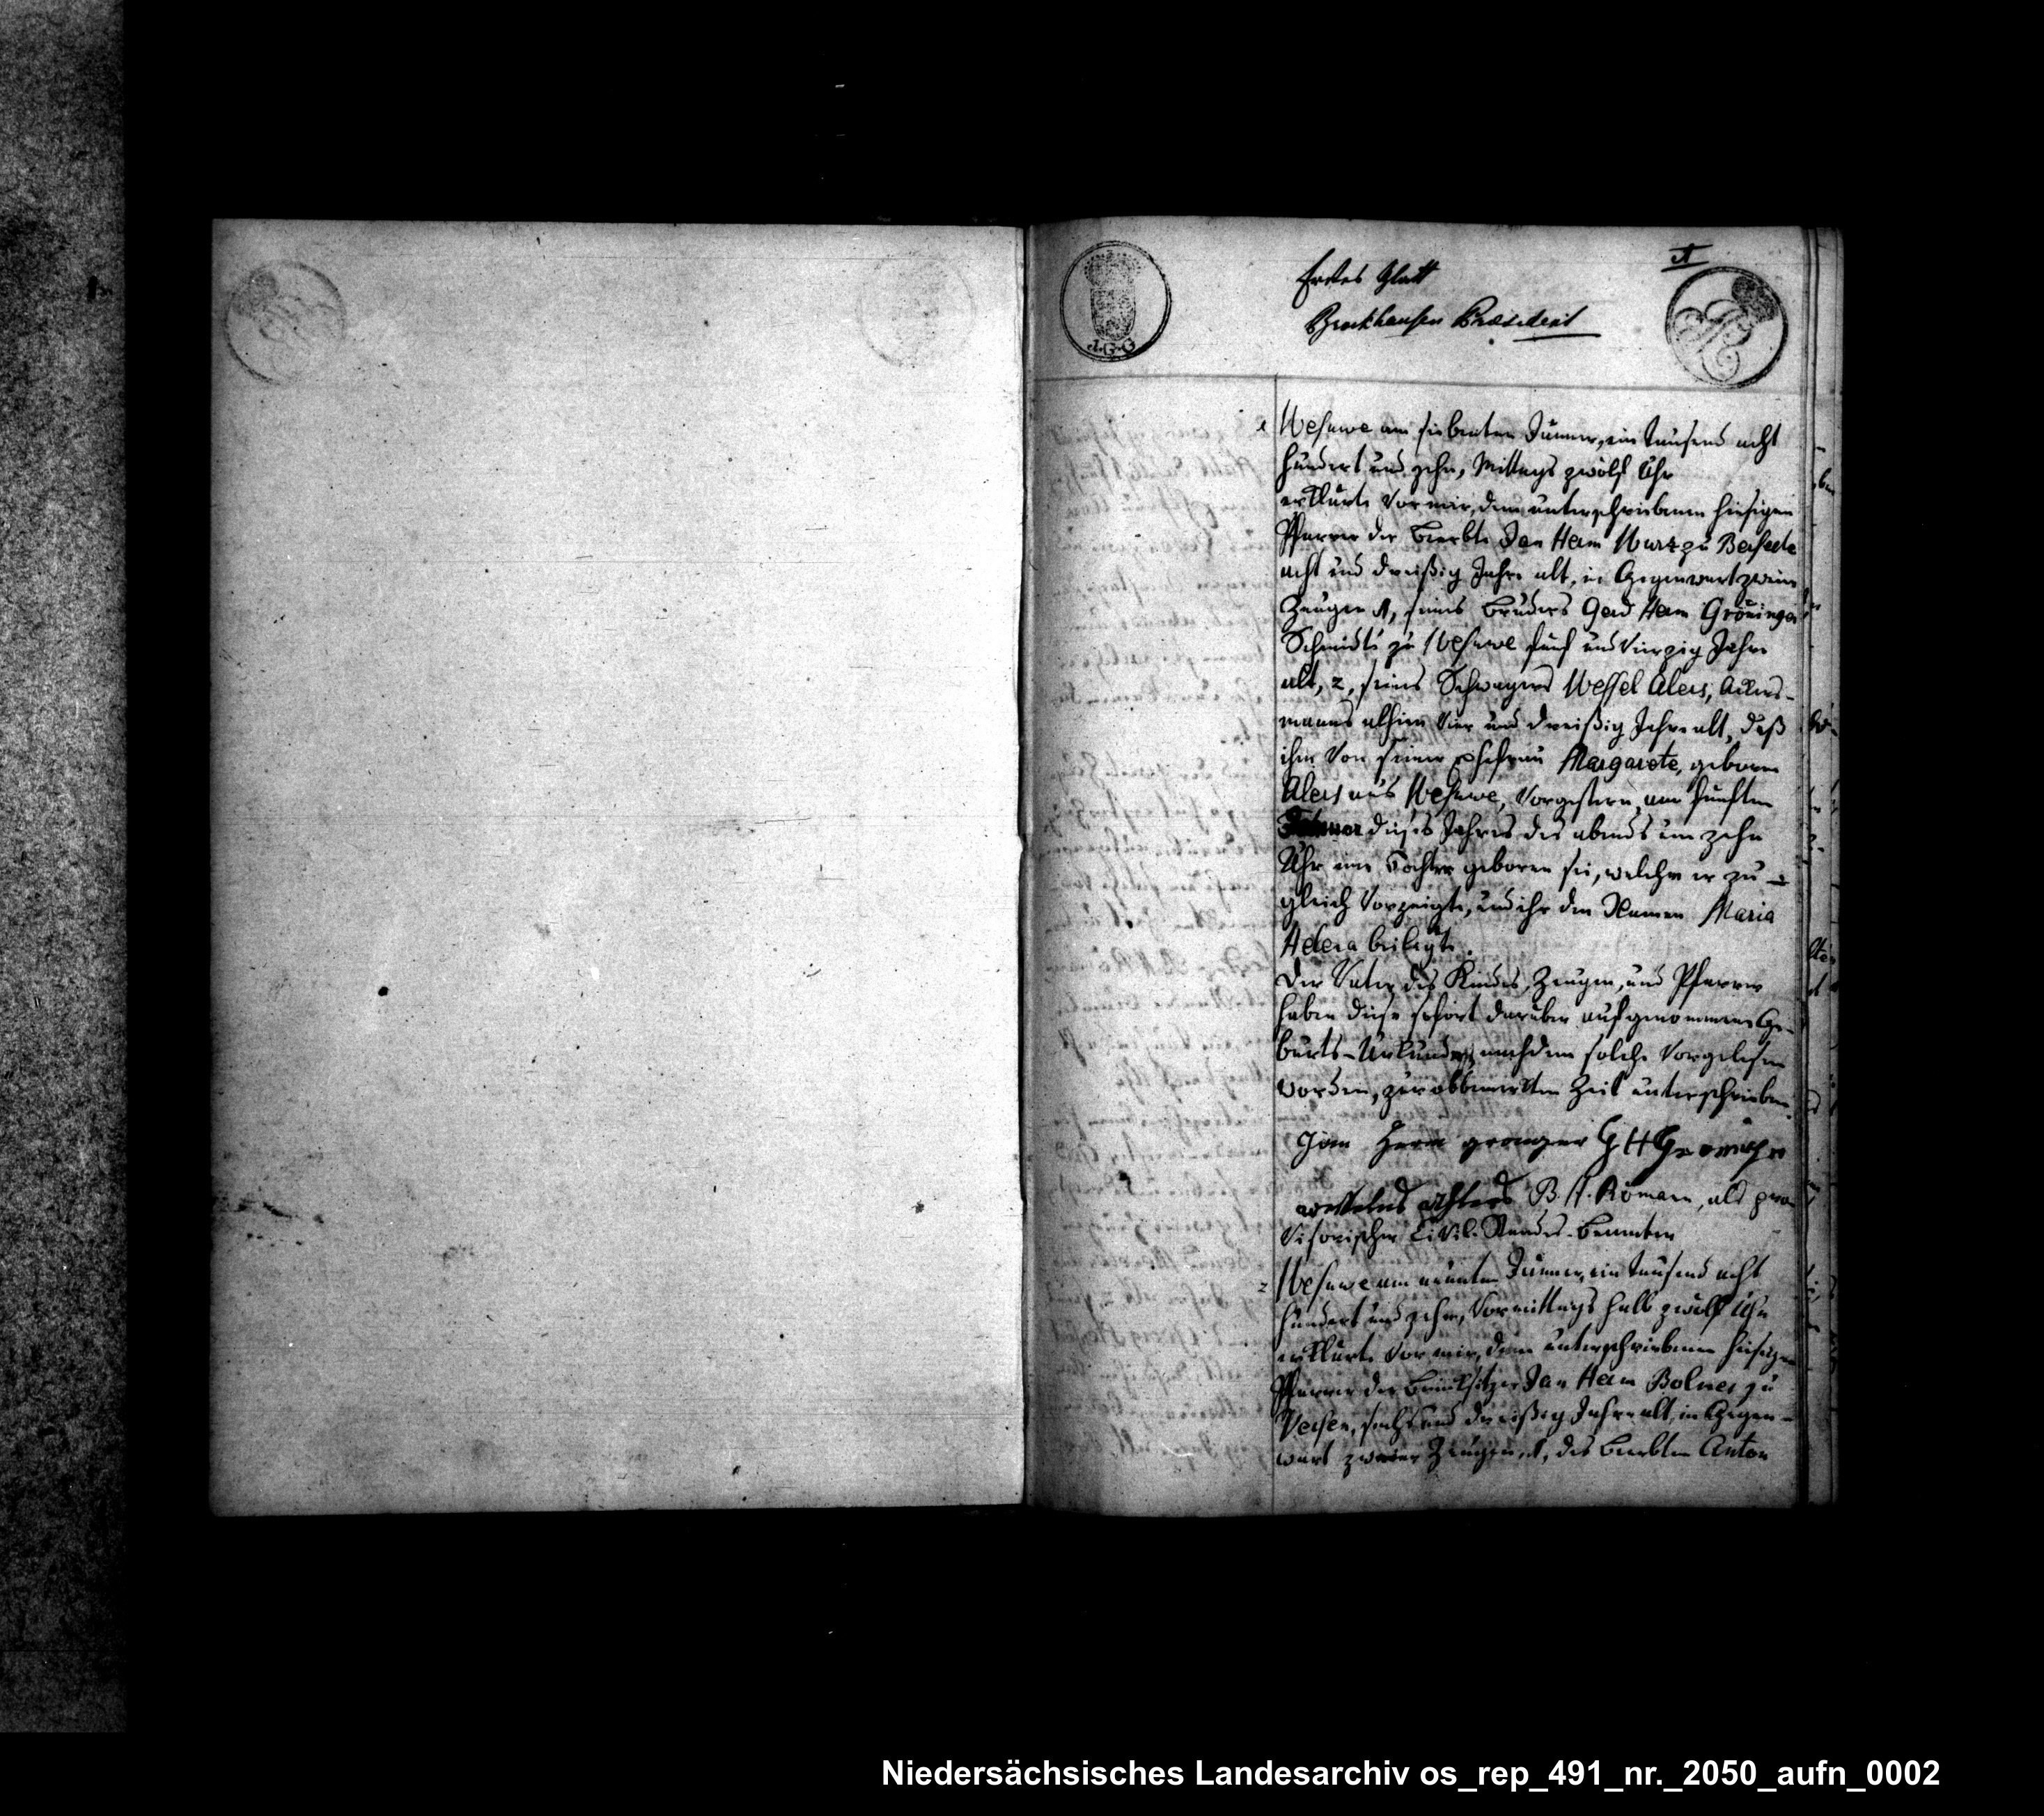 1
Erstes Blatt
Bruckhausen Praesident
1 Wesuwe am siebenten Jänner, ein Tausend acht
hundert und zehn, Mittags zwölf Uhr
erklärte vor mir, dem unterschriebenen hiesigen
Pfarrer der Beerbte Jan Herm Wurz zu Bersede
acht und dreißig Jahre alt, in Gegenwart zweier
Zeugen 1, seines Bruders Gerd Herm Gröninger
Schmidts zu Wesuwe fünf und vierzig Jahre
alt, 2, seines Schwagers Wessel Alers, Ackers-
manns alhier vier und dreißig Jahre alt, daß
ihm von seiner Ehefrau Margarete, geboren
Alers aus Wesuwe, vorgestern am fünften
Jänner dieses Jahres des abends um zehn
Uhr eine Tochter geboren sei, welche er zu-
gleich vorzeigte, und ihr den Namen Maria
Helena beilegte.
Der Vater des Kindes, Zeugen, und Pfarrer
haben diese sofort darüber aufgenommene Ge-
burts-Urkunde, nachdem solche vorgelesen
worden, zur obbemerkten Zeit unterschrieben.
Jan Herm groniger G H Groninger
B. H. Römann, als pro-
visorischer Civil-Standes-Beamten
2 Wesuwe am neunten Jänner, ein Tausend acht
hundert und zehn, Vormittags halb zwölf Uhr
erklärte vor mir, dem unterschriebenen hiesigen
Pfarrer der Brinksitzer Jan Herm Bolmer zu
Versen, sechs und dreißig Jahre alt, in Gegen-
wart zweier Zeugen, 1, des Beerbten Anton
Niedersächsisches Landesarchiv os_rep_491_nr._2050_aufn_0002